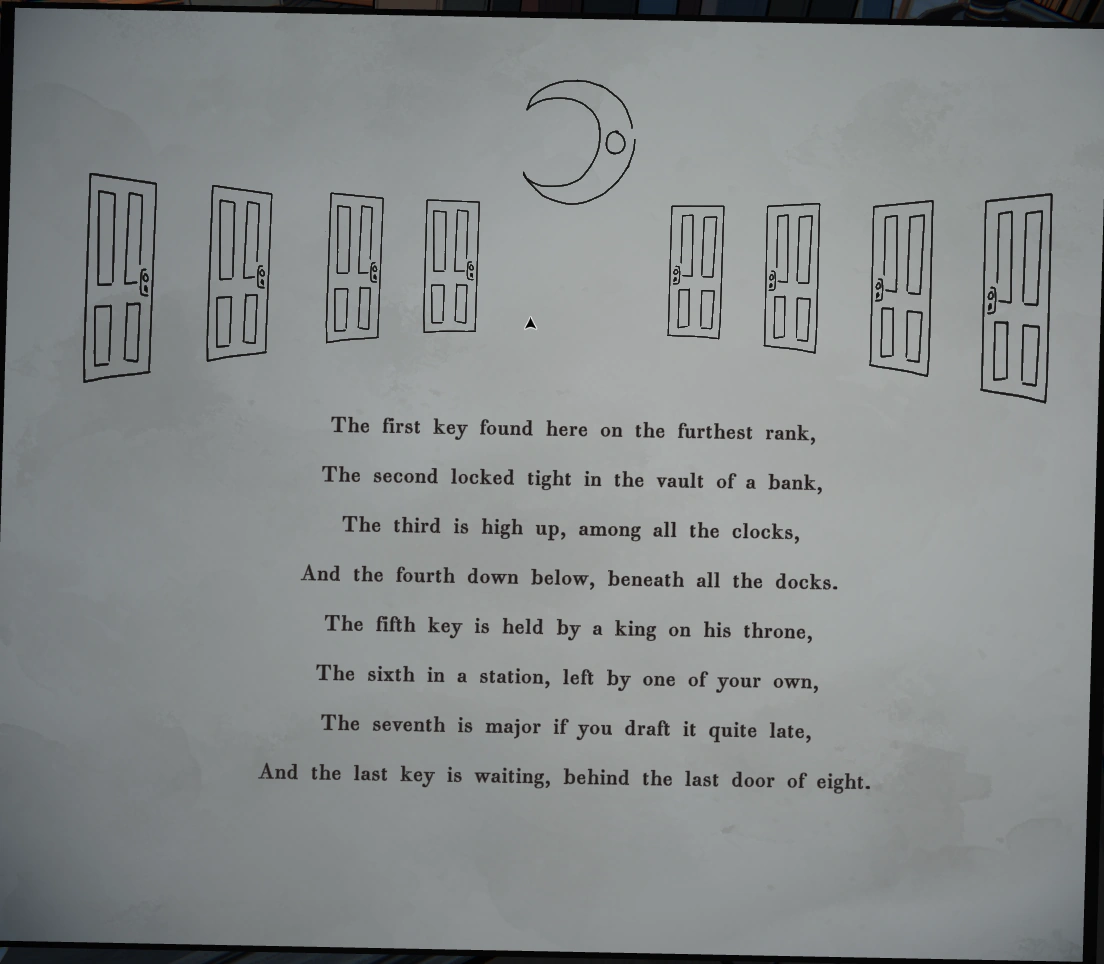 The first key found here on the furthest rank,
The second locked tight in the vault of a bank,
The third is high up, among all the clocks,
And the fourth down below, beneath all the docks.
The fifth key is held by a king on his throne,
The sixth in a station, left by one of your own,
The seventh is major if you draft it quite late,
And the last key is waiting, behind the last door of eight.